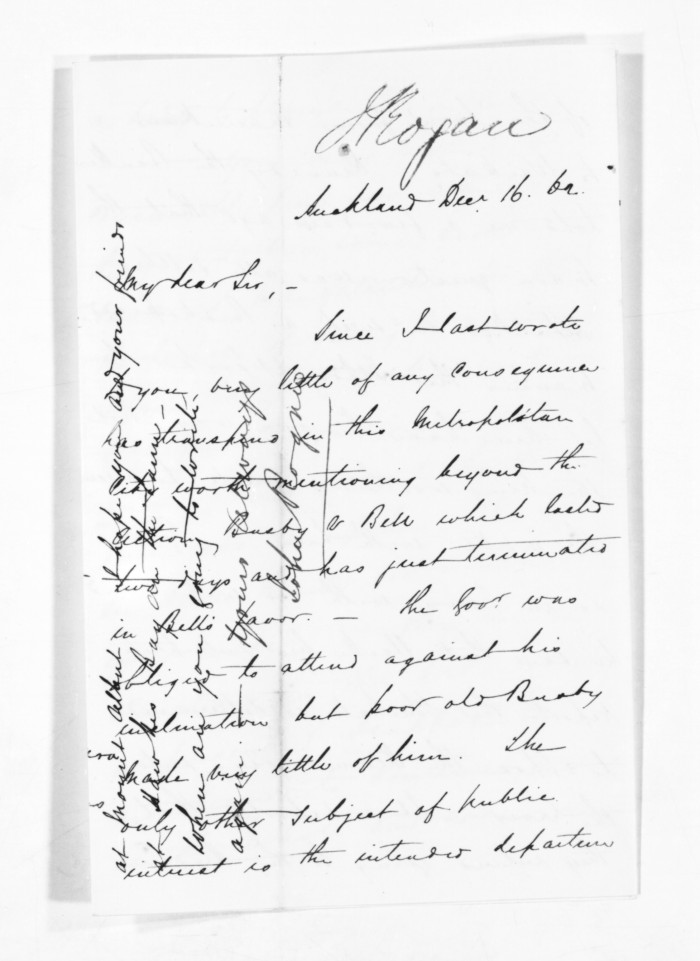 J Rogan
Auckland Decr 16. 62.
My dear Sir, –
Since I last wrote
to you very little of any consequence
has transpired in this Metropolitan
City worth mentioning beyond the
action, Busby v Bell which lasted
two days and has just terminated
in Bell's favor. – The Govr was
obliged to attend against his
inclination but poor old Busby
made very little of him. The
only other subject of public
interest is the intended departure
I hope you and your friends
at Mount Albert
at Hawke's Bay are
When are you going to North
again – Yours always
John Rogan